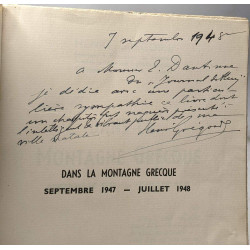 7 septembre 1948
a Monsieur E. Dantinne
du "Journal de Huy",
je dédie avec une particu-
lière sympathie ce livre dont
un chapitre fut naguère présenté
l'intelligent de ma
ville natale. Henri Grégoire
DANS LA MONTAGNE GRECQUE
SEPTEMBRE 1947 — JUILLET 1948